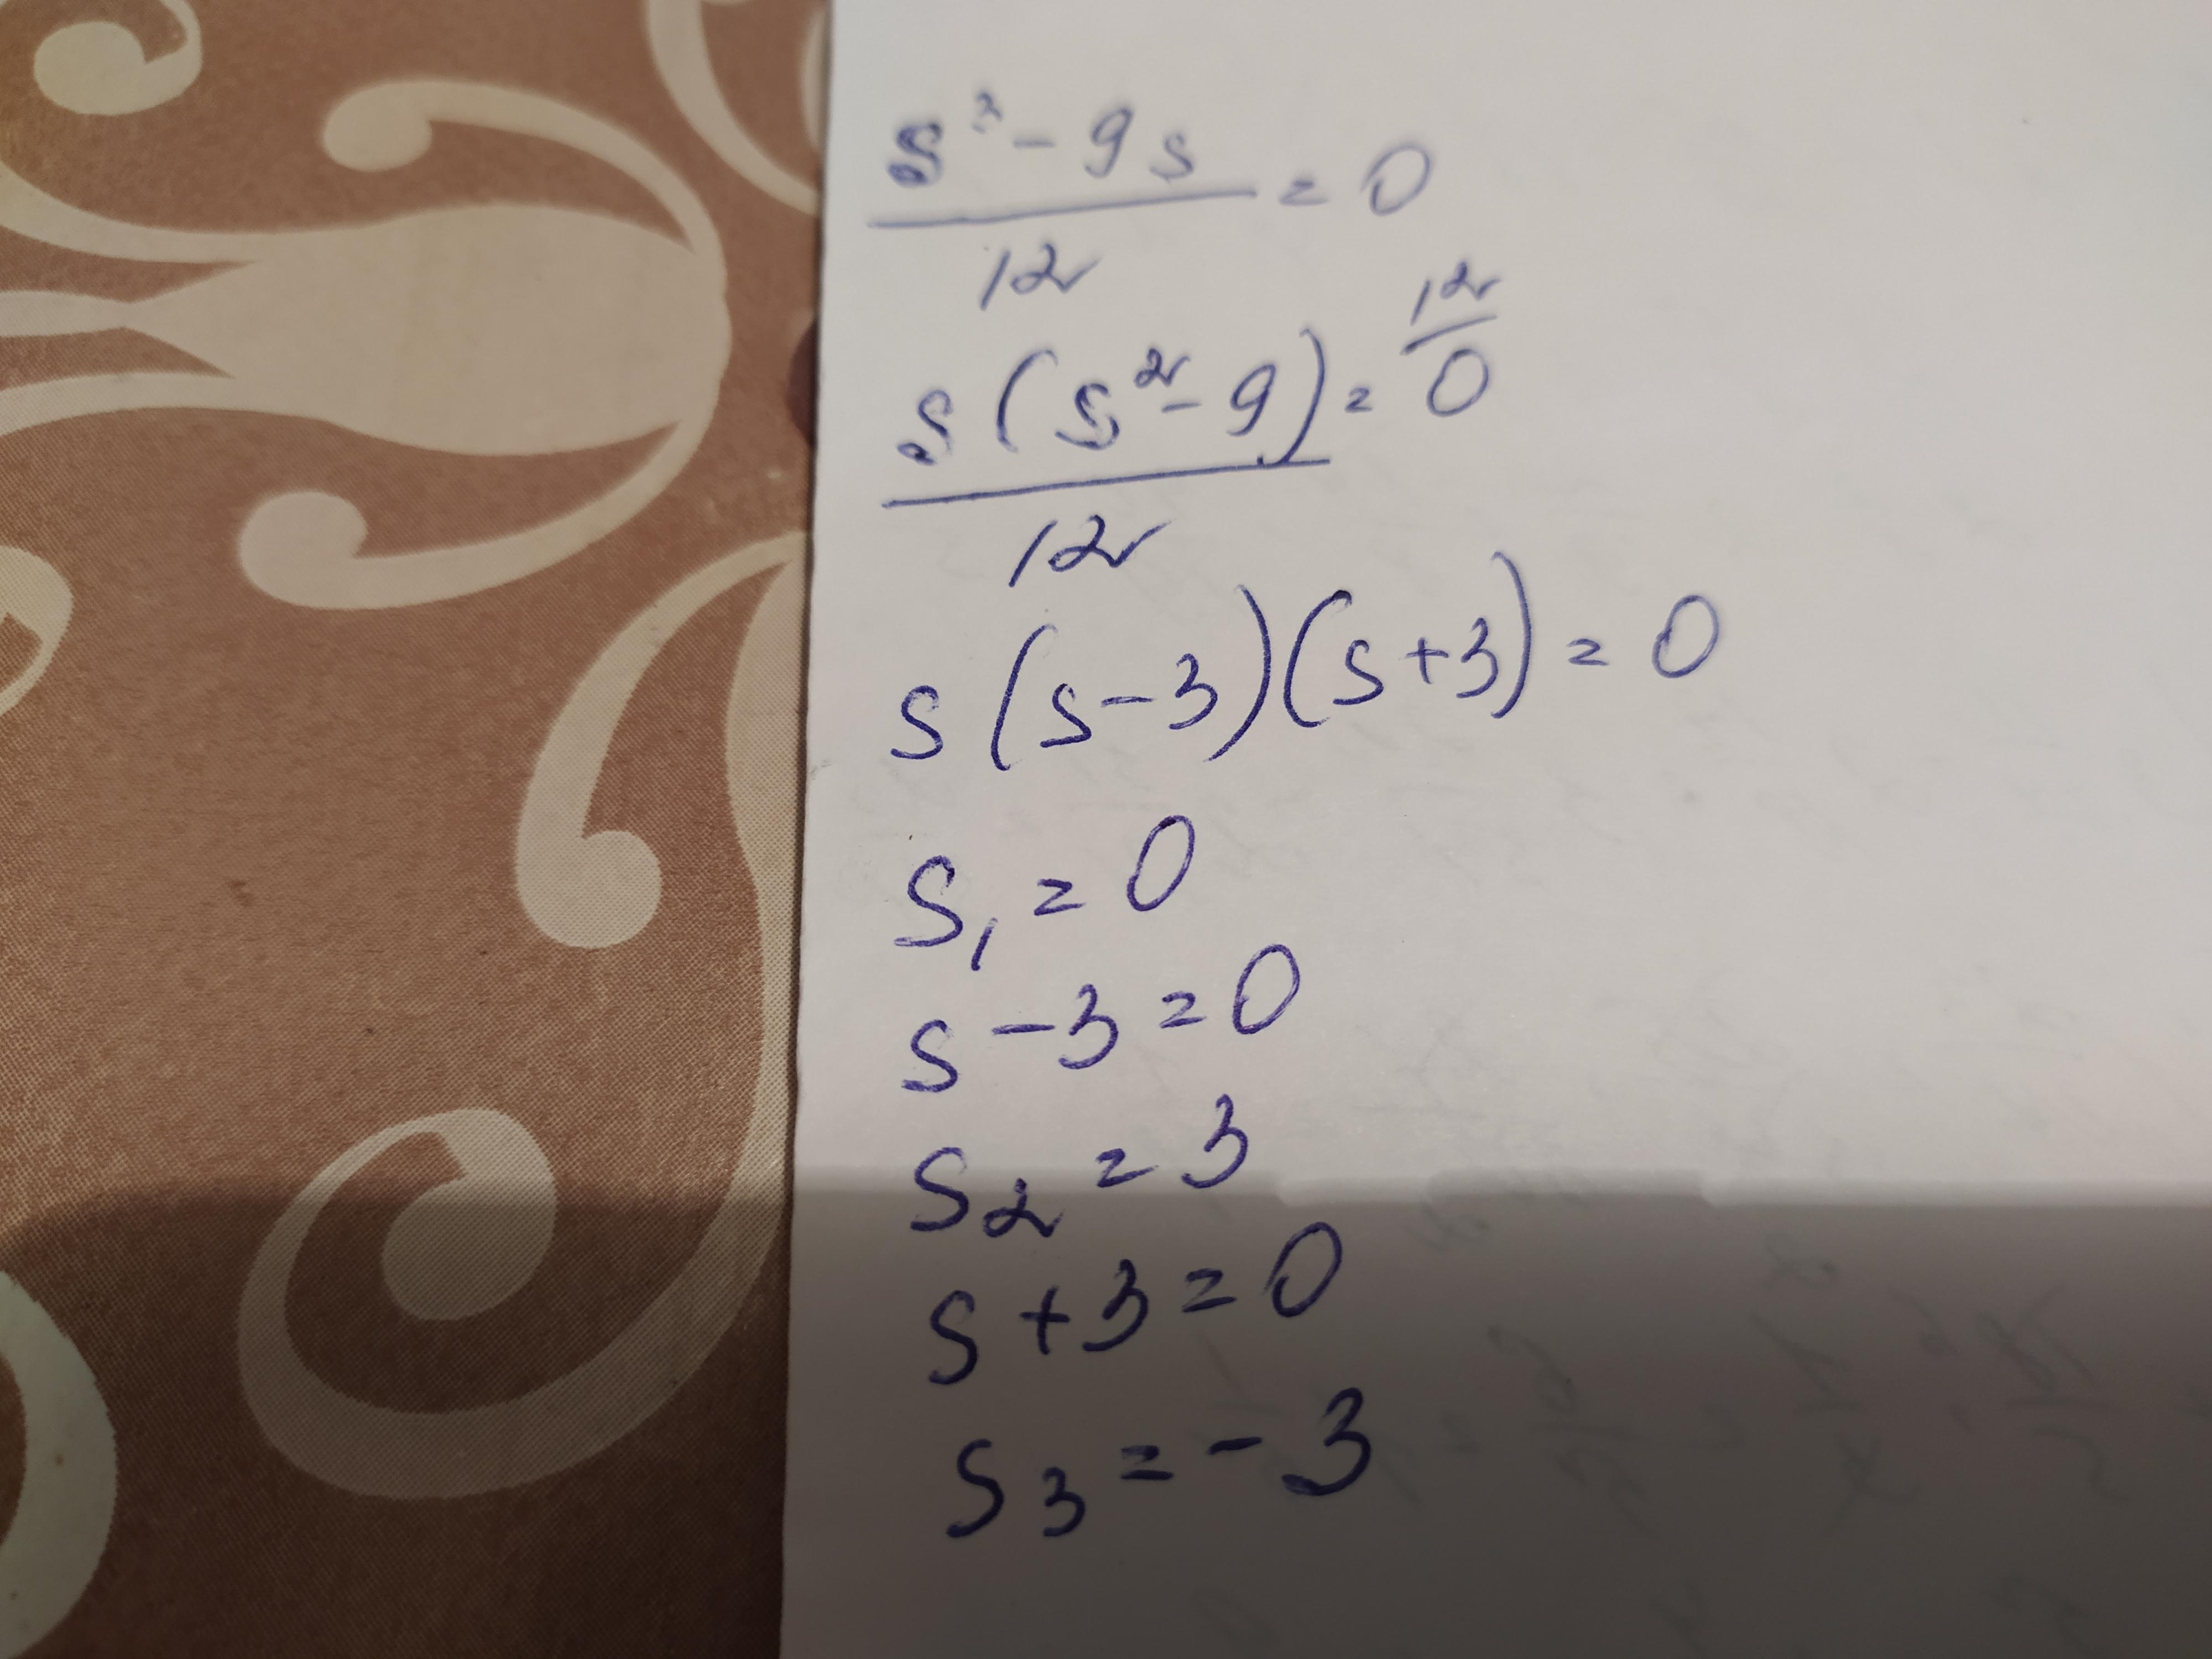 s³ - 9s / 12 = 0
s(s² - 9) / 12 = 12/0
s(s-3)(s+3) = 0
s₁ = 0
s - 3 = 0
s₂ = 3
s + 3 = 0
s₃ = -3